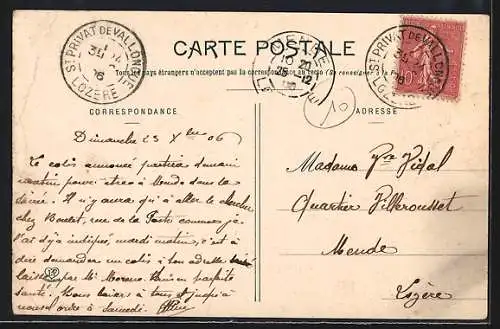 CARTE POSTALE
Tous les pays étrangers n'acceptent pas la correspondance au recto (Se renseigner à la
CORRESPONDANCE
ADRESSE
ST PRIVAT DE VALLONGUE
LOZÈRE
MENDE
25 -12
ST PRIVAT DE VALLONGUE
LOZÈRE
10
Dimanche 23 Xbre 06
Le colis annoncé partira demain
matin pour être à Mende dans la
soirée. Il n'y aura qu'à aller le chercher
chez Boulet, rue de la comme je
l'ai déjà indiqué, mardi matin, c'est à
dire demander un colis à ton adresse
laissé par Mr Moreno. en parfaite
santé. Bons baisers à tous et jusqu'à
à samedi.
Madame Vve Vidal
Quartier Pillerousset
Mende
Lozère